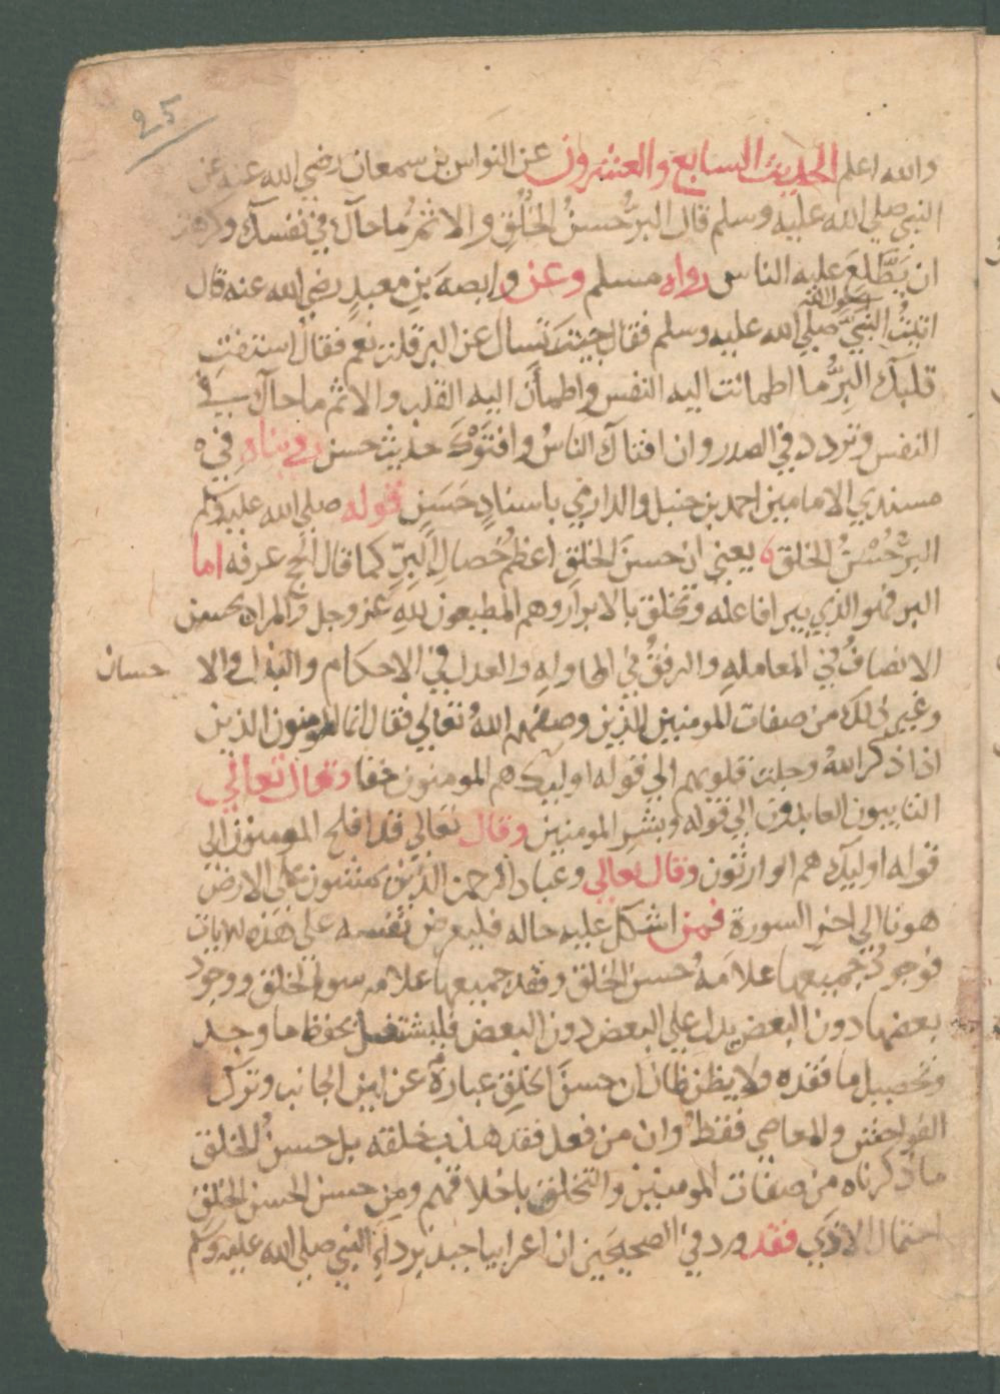 25
والله اعلم الحديث السابع والعشرون عن النواس بن سمعان رضي الله عنه عن
النبي صلي الله عليه وسلم قال البر حسنُ الخُلُقِ والاثمُ ما حاك في نفسك وكرهت
ان يَطَّلِعَ عليه الناس رواه مسلم وعن وابصة بنِ معبدٍ رضي الله عنه قال
رسول الله
اتيتُ النبيَّ صلي الله عليه وسلم فقال جيتَ تسال عن البر قلت نعم فقال استفتِ
قلبك البِرُّ ما اطمانت اليه النفس واطمأن اليه القلب والاثم ما حاك في
النفس وتردد في الصدر وان افتاك الناسُ وافتَوْكَ حديث حسن رويناه في
مسندي الامامين احمد بن حنبل والدارمي باسنادٍ حَسَنٍ قوله صلي الله عليه وسلم
البرُّ حُسْنُ الخلق يعني ان حسنَ الخلقِ اعظمُ خصالِ البِرِّ كما قال الحج عرفه اما
البر فهو الذي يبر افاعله وتخلق بالابرار وهم المطيعون للهِ عز وجل والمراد بحسن
الانصافُ في المعاملهِ والرفقُ في المحاولهِ والعدل في الاحكام والبذل والا حسان
وغير ذلك من صفات المومنين الذين وصفهم اللهُ تعالي فقال انما المومنون الذين
اذا ذكر اللهُ وجلت قلوبهم الي قوله اوليك هم المومنون حقا وقال تعالي
التايبون العابدون الي قوله وبشر المومنين وقال تعالي قد افلح المومنون الي
قوله اوليك هم الوارثون وقال تعالي وعباد الرحمن الذين يمشون علي الارض
هونا الي اخر السورة فمن اشكل عليه حاله فليعرض نفسه علي هذه الايات
فوجود جميعها علامةُ حسن الخلق وفقد جميعها علامه سوء الخلق ووجود
بعضها دون البعض يدل علي البعض دون البعض فليشتغل بحفظ ما وجد
وتحصيل ما فقده ولا يظن ظان ان حسنَ الخلقِ عبارةٌ عن لين الجانب وترك
الفواحش والمعاصي فقط وان من فعل فقد هذب خلقه بل حسنُ الخلق
ما ذكرناه من صفات المومنين والتخلق باخلاقهم ومن حسن الحسن الخلق
احتمال الاذي فقد ورد في الصحيحين ان اعرابيا جبد برداءِ النبي صلي الله عليه وسلم